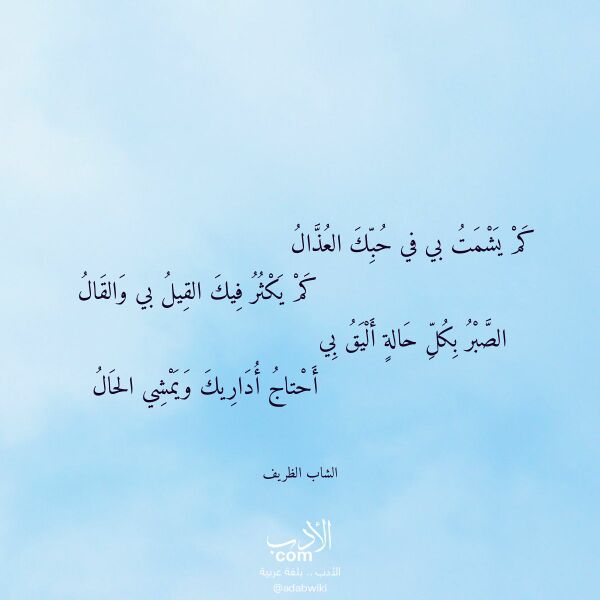 كَمْ يَشْمَتُ بي في حُبِّكَ العُذَّالُ
كَمْ يَكْثُرُ فِيكَ القِيلُ بي وَالقَالُ
الصَّبْرُ بِكُلِّ حَالةٍ أَلْيَقُ بِي
أَحْتاجُ أُدَارِيكَ وَيَمْشِي الحَالُ
الشاب الظريف
الأدب
com
الأدب .. بلغة عربية
@adabwiki